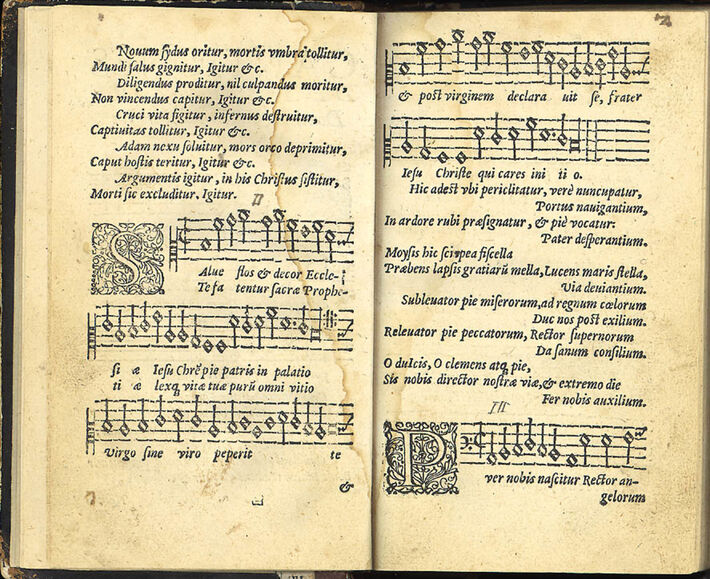 Nouum sydus oritur, mortis vmbra tollitur,
Mundi salus gignitur, Igitur &c.
Diligendus proditur, nil culpandus moritur,
Non vincendus capitur, Igitur &c.
Cruci vita figitur, infernus destruitur,
Captiuitas tollitur, Igitur &c.
Adam nexu soluitur, mors orco deprimitur,
Caput hostis teritur, Igitur &c.
Argumentis igitur, in his Christus sistitur,
Morti sic excluditur, Igitur.
II
SAlue flos & decor Eccle-
Te fa tentur sacræ Prophe-
si æ Iesu Chrē pie patris in palatio
ti æ lexq, vitæ tuæ purū omni vitio
Virgo sine viro peperit te
&
& post virginem declara uit se, frater
Iesu Christe qui cares ini ti o.
Hic adest vbi periclitatur, verè nuncupatur,
Portus nauigantium,
In ardore rubi præsignatur, & piè vocatur:
Pater desperantium.
Moysis hic scirpea fiscella
Præbens lapsis gratiarū mella, Lucens maris stella,
Via deuiantium.
Subleuator pie miserorum, ad regnum cœlorum
Duc nos post exilium.
Releuator pie peccatorum, Rector supernorum
Da sanum consilium.
O dulcis, O clemens atq, pie,
Sis nobis director nostræ viæ, & extremo die
Fer nobis auxilium.
III
PVer nobis nascitur Rector an-
gelorum